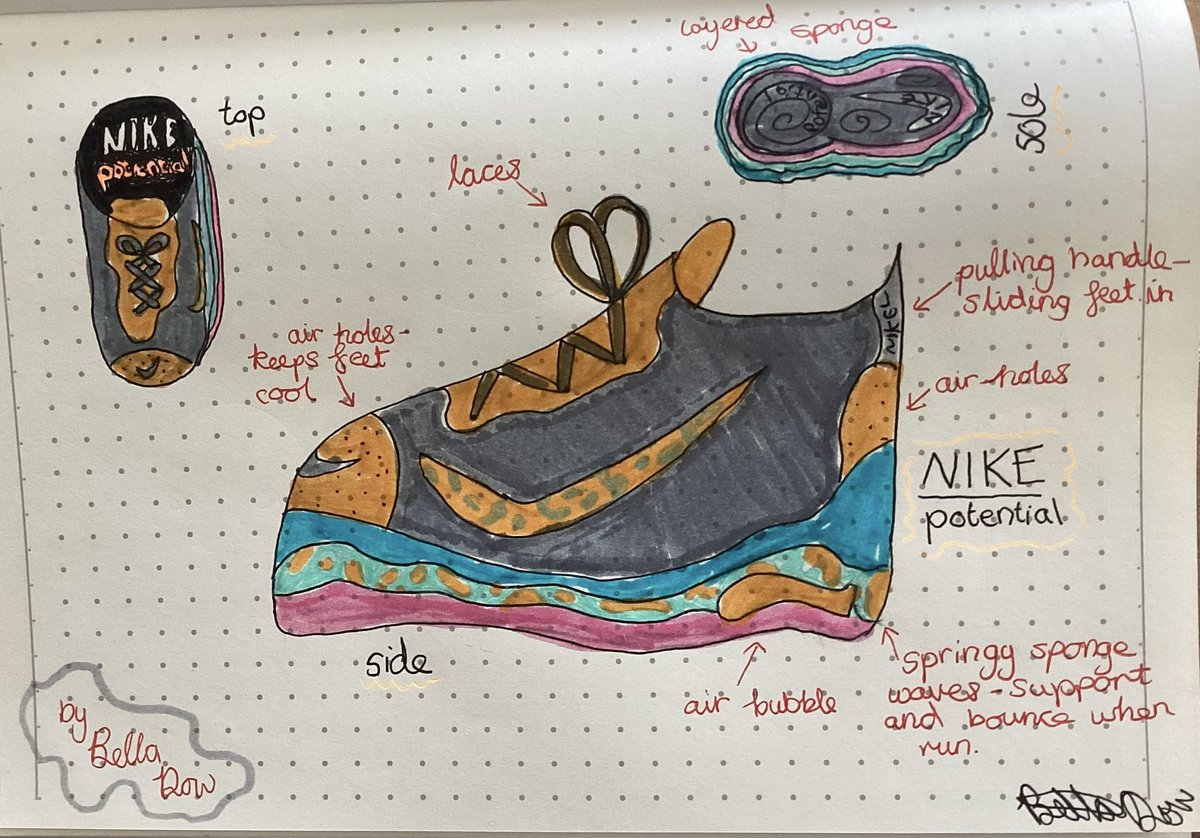 layered sponge
NIKE
potential
top
potential
NIKE
sole
laces
pulling handle-
sliding feet in
NIKE
air holes-
keeps feet
cool
air-holes
NIKE
potential
side
air bubble
springy sponge
waves-support
and bounce when
run.
by
Bella
Row